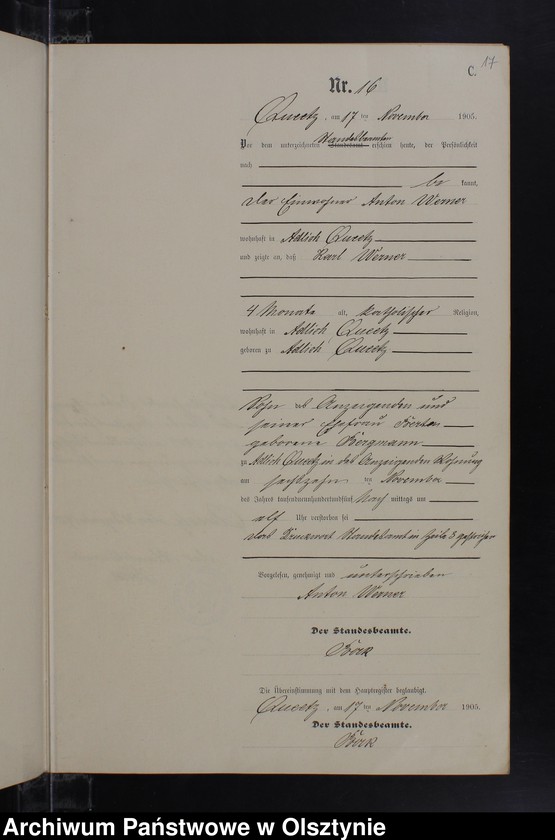 C. 17
Nr. 16
Queetz, am 17 ten November 1905.
Standesbeamten
Vor dem unterzeichneten Standesamt erschien heute, der Persönlichkeit
nach
be kannt,
der Einwohner Anton Werner
wohnhaft in Adlich Queetz
und zeigte an, daß Karl Werner
4 Monate alt, katholischer Religion,
wohnhaft in Adlich Queetz
geboren zu Adlich Queetz
Sohn des Anzeigenden und
seiner Ehefrau Bertha
geborene Bergmann
zu Adlich Queetz in des Anzeigenden Wohnung
am sechzehn ten November
des Jahres tausendneunhundertfünf Nach mittags um
elf Uhr verstorben sei
Das Druckwort Standesamt in Zeile 3 gestrichen
Vorgelesen, genehmigt und unterschrieben
Anton Werner
Der Standesbeamte.
Böck
Die Übereinstimmung mit dem Hauptregister beglaubigt.
Queetz, am 17 ten November 1905.
Der Standesbeamte.
Böck
Archiwum Państwowe w Olsztynie